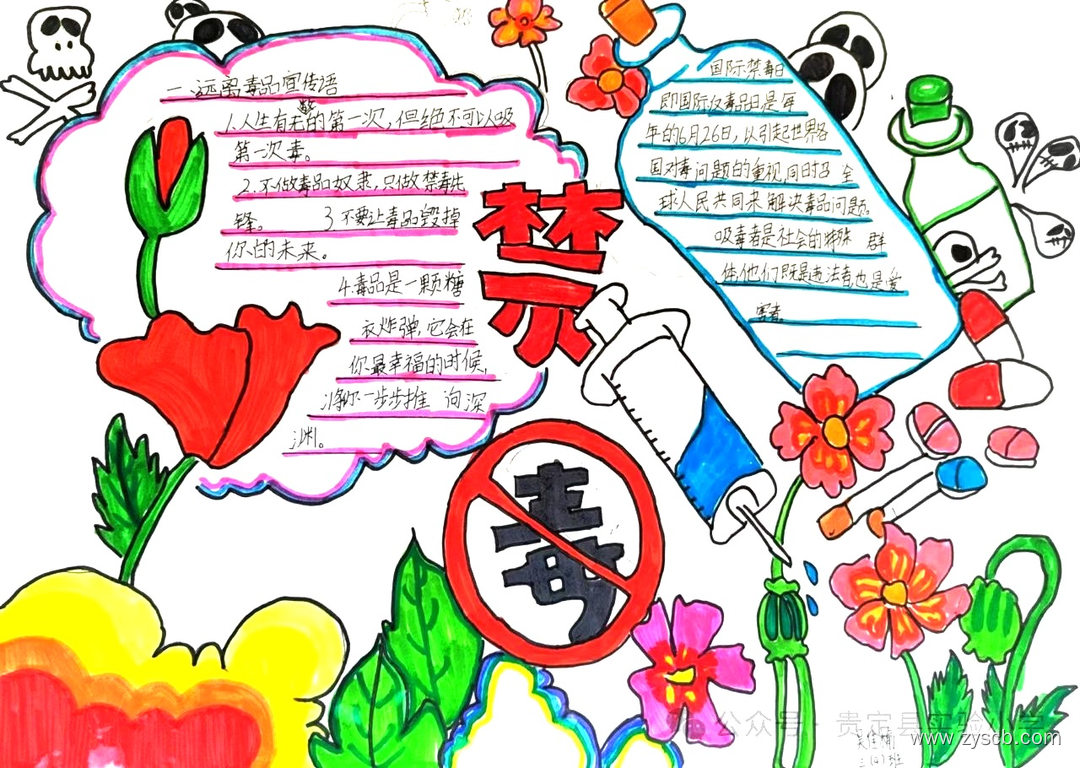 一、远离毒品宣传语
1.人生有无数的第一次,但绝不可以吸
第一次毒。
2.不做毒品奴隶,只做禁毒先
锋。 3 不要让毒品毁掉
你的未来。
4.毒品是一颗糖
衣炸弹,它会在
你最幸福的时候,
将你一步步推 向深
渊。
禁
毒
国际禁毒日
即国际反毒品日是每
年的6月26日,以引起世界各
国对毒问题的重视,同时召 全
球人民共同来解决毒品问题。
吸毒者是社会的特殊 群
体,他们既是违法者也是受
害者。
公众号·贵定县实验小学
www.zyscb.com